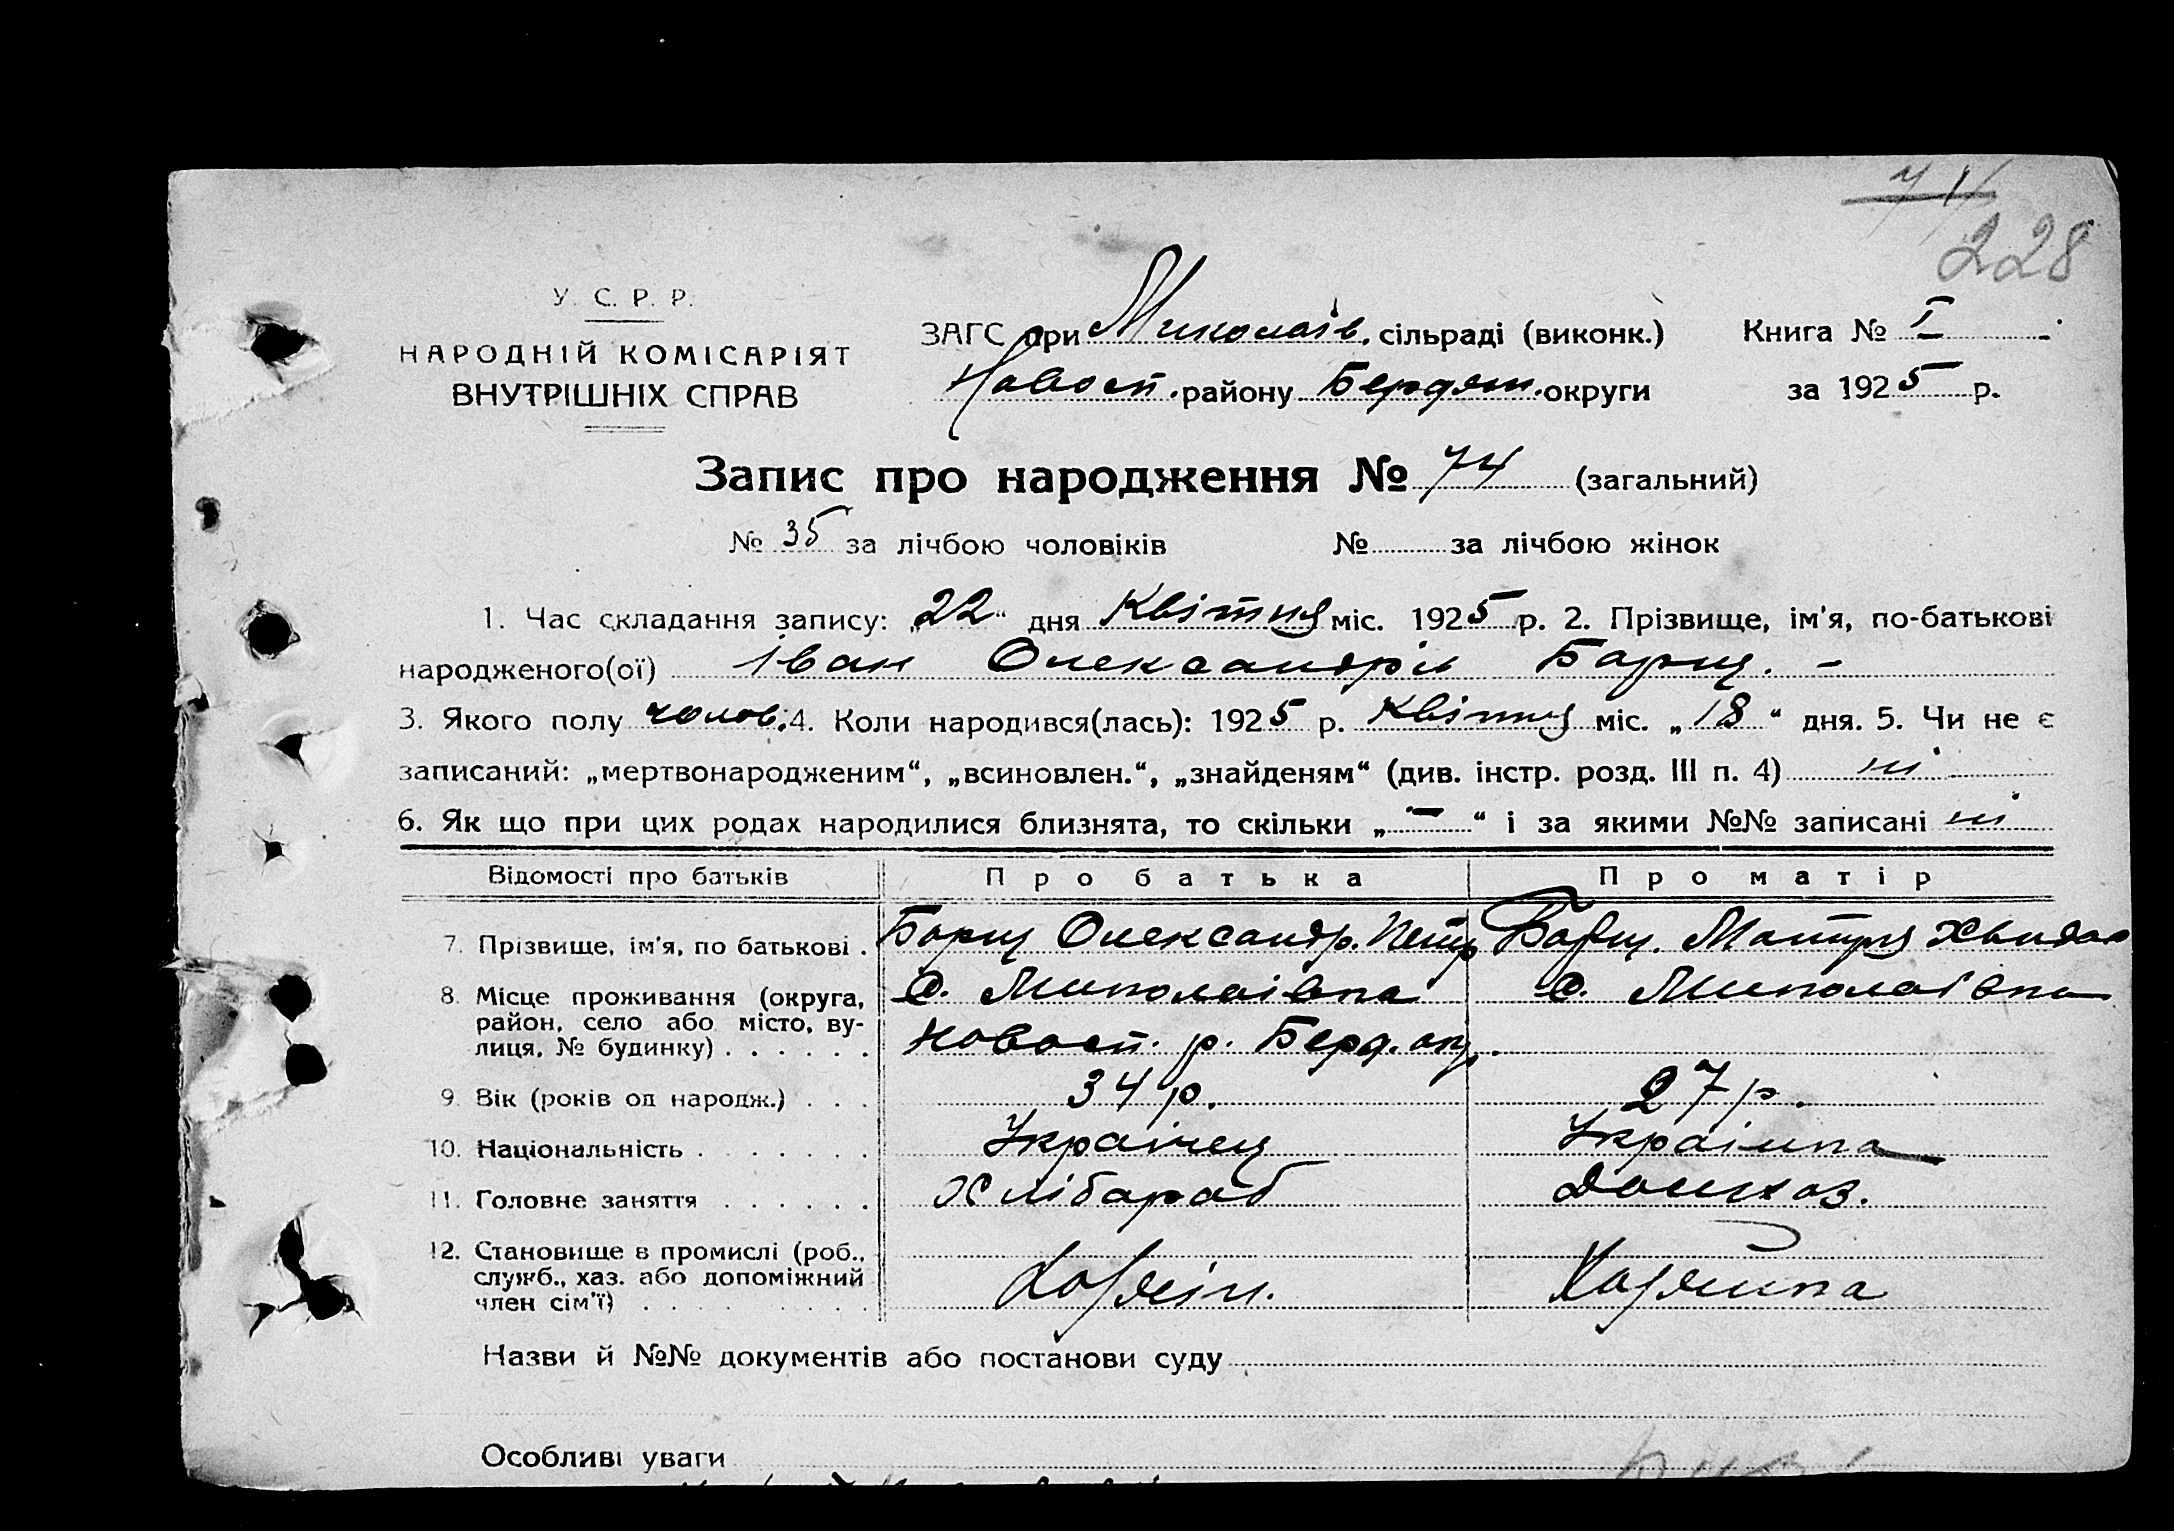 74
228
У. С. Р. Р.
НАРОДНІЙ КОМІСАРІЯТ
ВНУТРІШНІХ СПРАВ
ЗАГС при Миколаїв. сільраді (виконк.)
Новосп. району Бердян. округи
Книга № I
за 1925 р.
Запис про народження № 74 (загальний)
№ 35 за лічбою чоловіків № за лічбою жінок
1. Час складання запису: „22“ дня Квітня міс. 1925 р. 2. Прізвище, ім'я, по-батькові
народженого(ої) Іван Олександрів Борщ. –
3. Якого полу чолов. 4. Коли народився(лась): 1925 р. Квітня міс. „18“ дня. 5. Чи не є
записаний: „мертвонародженим“, „всиновлен.“, „знайденям“ (див. інстр. розд. III п. 4) ні
6. Як що при цих родах народилися близнята, то скільки „–“ і за якими №№ записані ні
Відомості про батьків Про батька Про матір
7. Прізвище, ім'я, по батькові . Борщ Олександр. Петр Борщ. Мотря
8. Місце проживання (округа, с. Миколаівка с. Миколаївка
район, село або місто, ву-
лиця, № будинку) . . . . . . Новосп. р. Берд. окр.
9. Вік (років од народж.) . . . 34 р. 27 р.
10. Національність . . . . . . . Украінец Украінка
11. Головне заняття . . . . . . Хлібараб Домхоз.
12. Становище в промислі (роб.,
служб., хаз. або допоміжний
член сім'ї) . . . . . . . . . Хазяін. Хазяйка
Назви й №№ документів або постанови суду
Особливі уваги